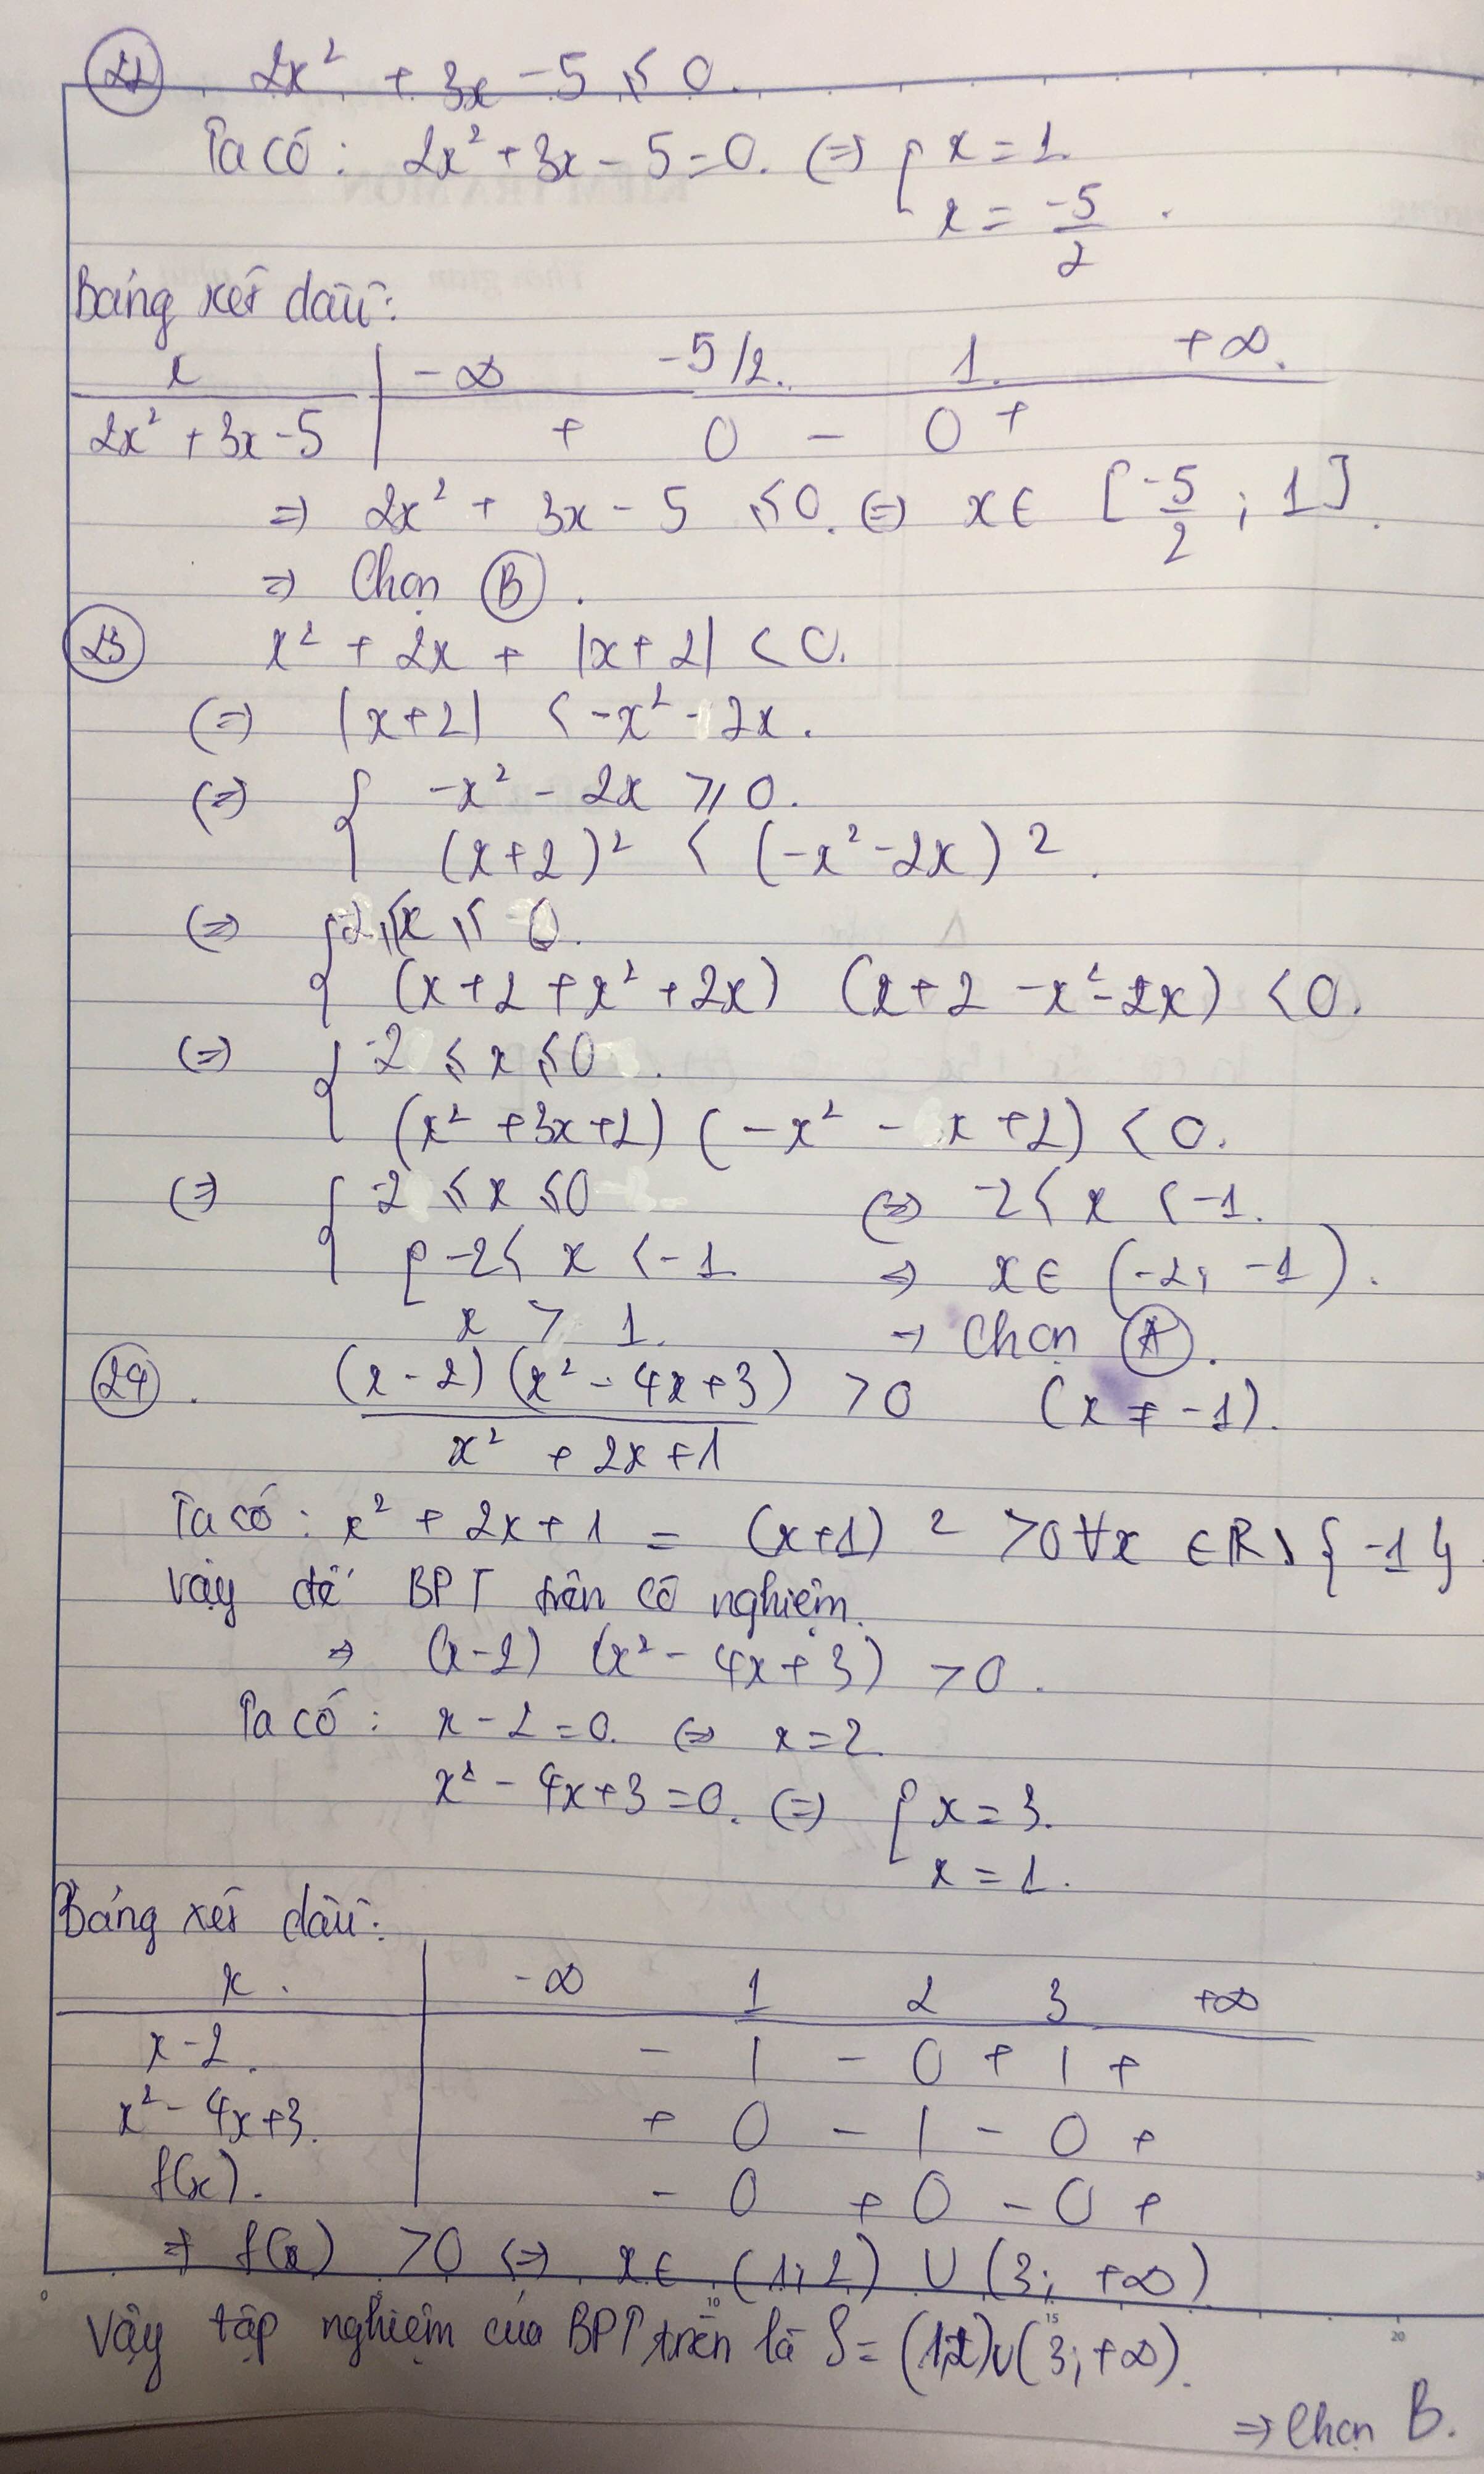 22 2x² + 3x - 5 ≤ 0.
Ta có: 2x² + 3x - 5 = 0. (=) [ x = 1.
x = -5/2.
Bảng xét dấu:
x | -∞ -5/2. 1. +∞.
2x² + 3x - 5 | + 0 - 0 +
=> 2x² + 3x - 5 ≤ 0. (=) x ∈ [-5/2 ; 1].
=> Chọn B.
23 x² + 2x + |x+2| < 0.
(=) |x+2| < -x² - 2x.
(=) { -x² - 2x ≥ 0.
(x+2)² < (-x² - 2x)².
(=) { -2 ≤ x ≤ 0.
(x + 2 + x² + 2x) (x + 2 - x² - 2x) < 0.
(=) { -2 ≤ x ≤ 0.
(x² + 3x + 2) (-x² - x + 2) < 0.
(=) { -2 ≤ x ≤ 0 (=) -2 < x < -1.
[ -2 < x < -1 => x ∈ (-2; -1).
x > 1. → Chọn A.
24. (x - 2)(x² - 4x + 3) / x² + 2x + 1 > 0 (x ≠ -1).
Ta có: x² + 2x + 1 = (x+1)² > 0 ∀x ∈ R \ { -1 }
Vậy để BPT trên có nghiệm.
=> (x - 2) (x² - 4x + 3) > 0.
Ta có: x - 2 = 0. (=) x = 2.
x² - 4x + 3 = 0. (=) [ x = 3.
x = 1.
Bảng xét dấu:
x. | -∞ 1 2 3 +∞
x - 2. | - | - 0 + | +
x² - 4x + 3. | + 0 - | - 0 +
f(x). | - 0 + 0 - 0 +
=> f(x) > 0 (=) x ∈ (1; 2) ∪ (3; +∞)
0 10 15 20
Vậy tập nghiệm của BPT trên là S = (1;2)∪(3; +∞).
=> Chọn B.